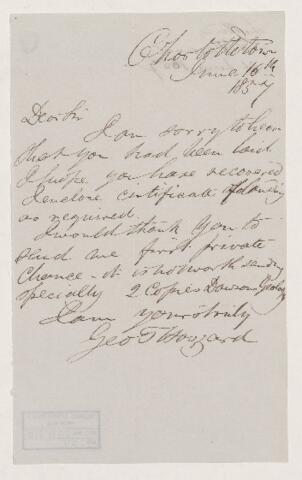 Charlottetown
June 16th
1857
Dear Sir
I am sorry to hear
that you had been laid
I hope you have recovered
I enclose certificate of dancing
as required.
I would thank you to
send me first private
chance - it is not worth sending
specially 2 Copies Dawsons Geology
I am yours truly
Geo T Haszard